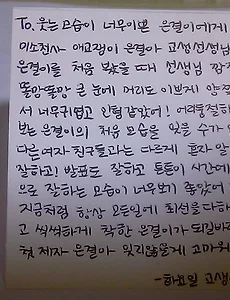 To. 웃는 모습이 너무이쁜 은결이에게
미소천사 애교쟁이 은결아 고생선생님
은결이를 처음 봤을 때 선생님 깜
똘망똘망 큰 눈에 머리도 이쁘게 양
서 너무귀엽고 인형같았어! 어리둥절하
보는 은결이의 처음 모습을 잊을 수가
다른여자 친구들과는 다르게 혼자 앞
잘하고! 발표도 잘하고 튼튼이 시간에
으로 잘하는 모습이 너무보기 좋았어
지금처럼 항상 모든일에 최선을 다하
고 씩씩하게 착한 은결이가 되길바
첫 제자 은결아 잊지않을게 고마워